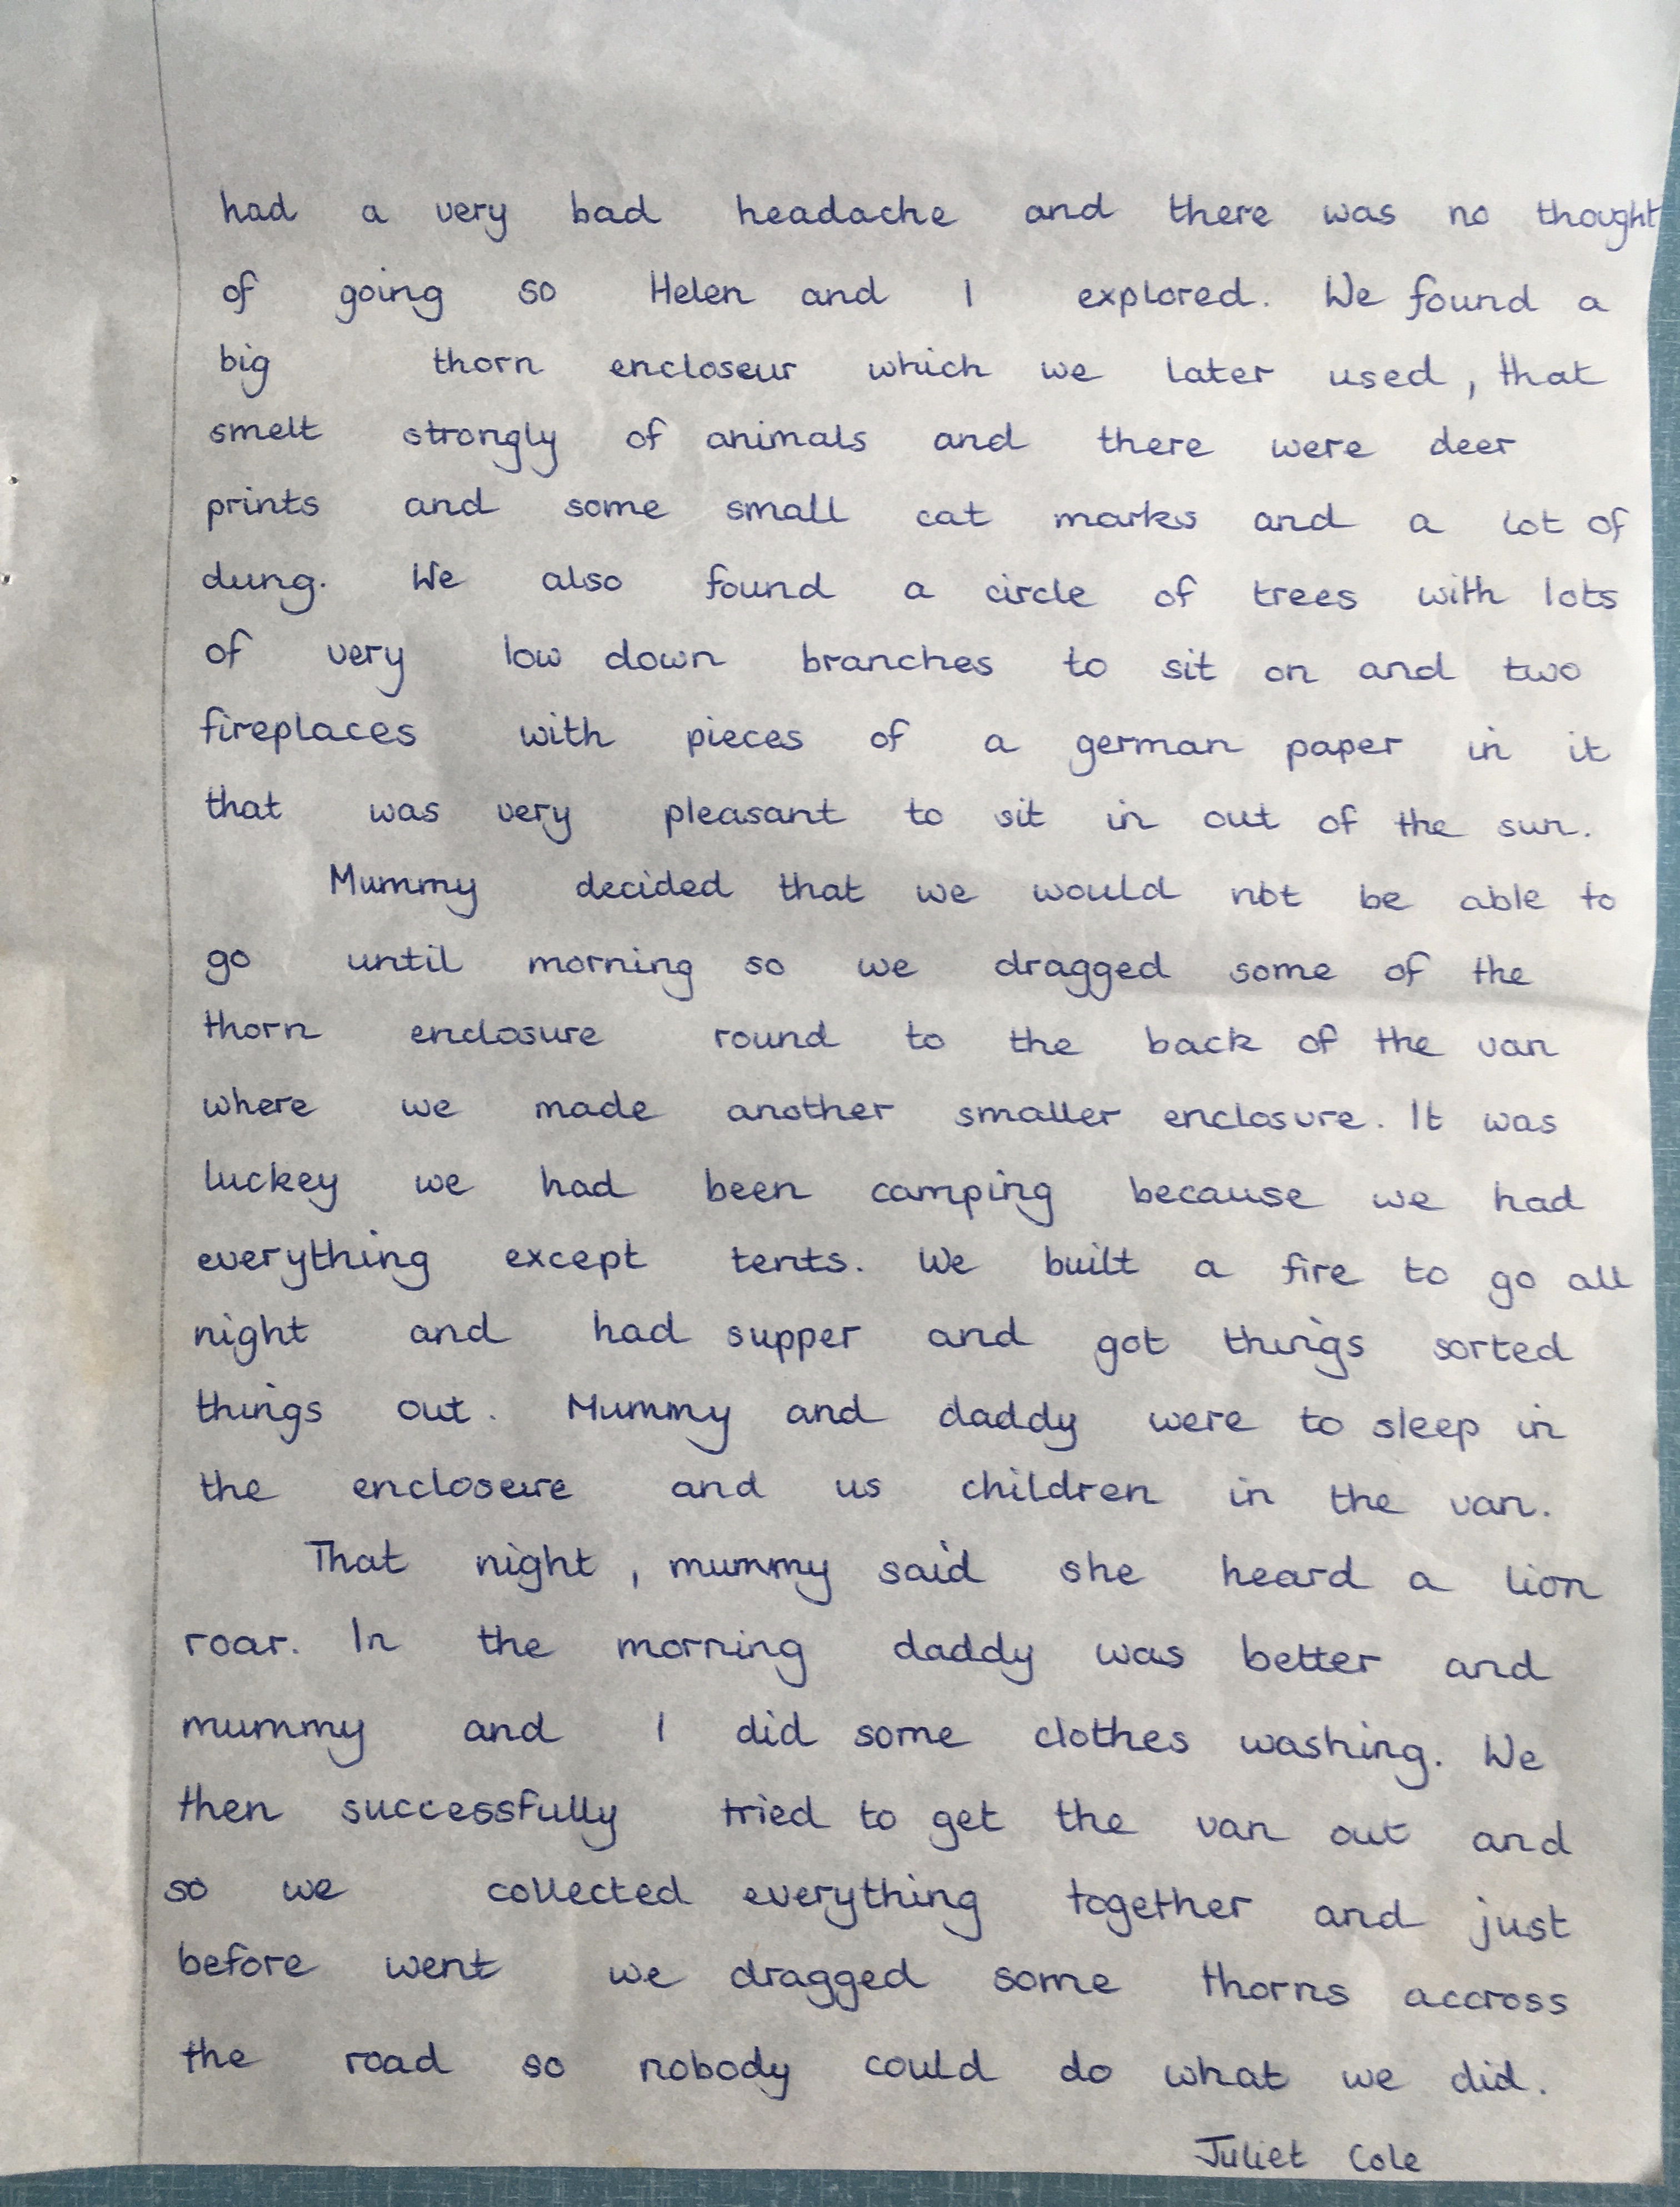 had a very bad headache and there was no thought
of going so Helen and I explored. We found a
big thorn encloseur which we later used, that
smelt strongly of animals and there were deer
prints and some small cat marks and a lot of
dung. We also found a circle of trees with lots
of very low down branches to sit on and two
fireplaces with pieces of a german paper in it
that was very pleasant to sit in out of the sun.
Mummy decided that we would not be able to
go until morning so we dragged some of the
thorn enclosure round to the back of the van
where we made another smaller enclosure. It was
luckey we had been camping because we had
everything except tents. We built a fire to go all
night and had supper and got things sorted
things out. Mummy and daddy were to sleep in
the encloseure and us children in the van.
That night, mummy said she heard a lion
roar. In the morning daddy was better and
mummy and I did some clothes washing. We
then successfully tried to get the van out and
so we collected everything together and just
before went we dragged some thorns accross
the road so nobody could do what we did.
Juliet Cole